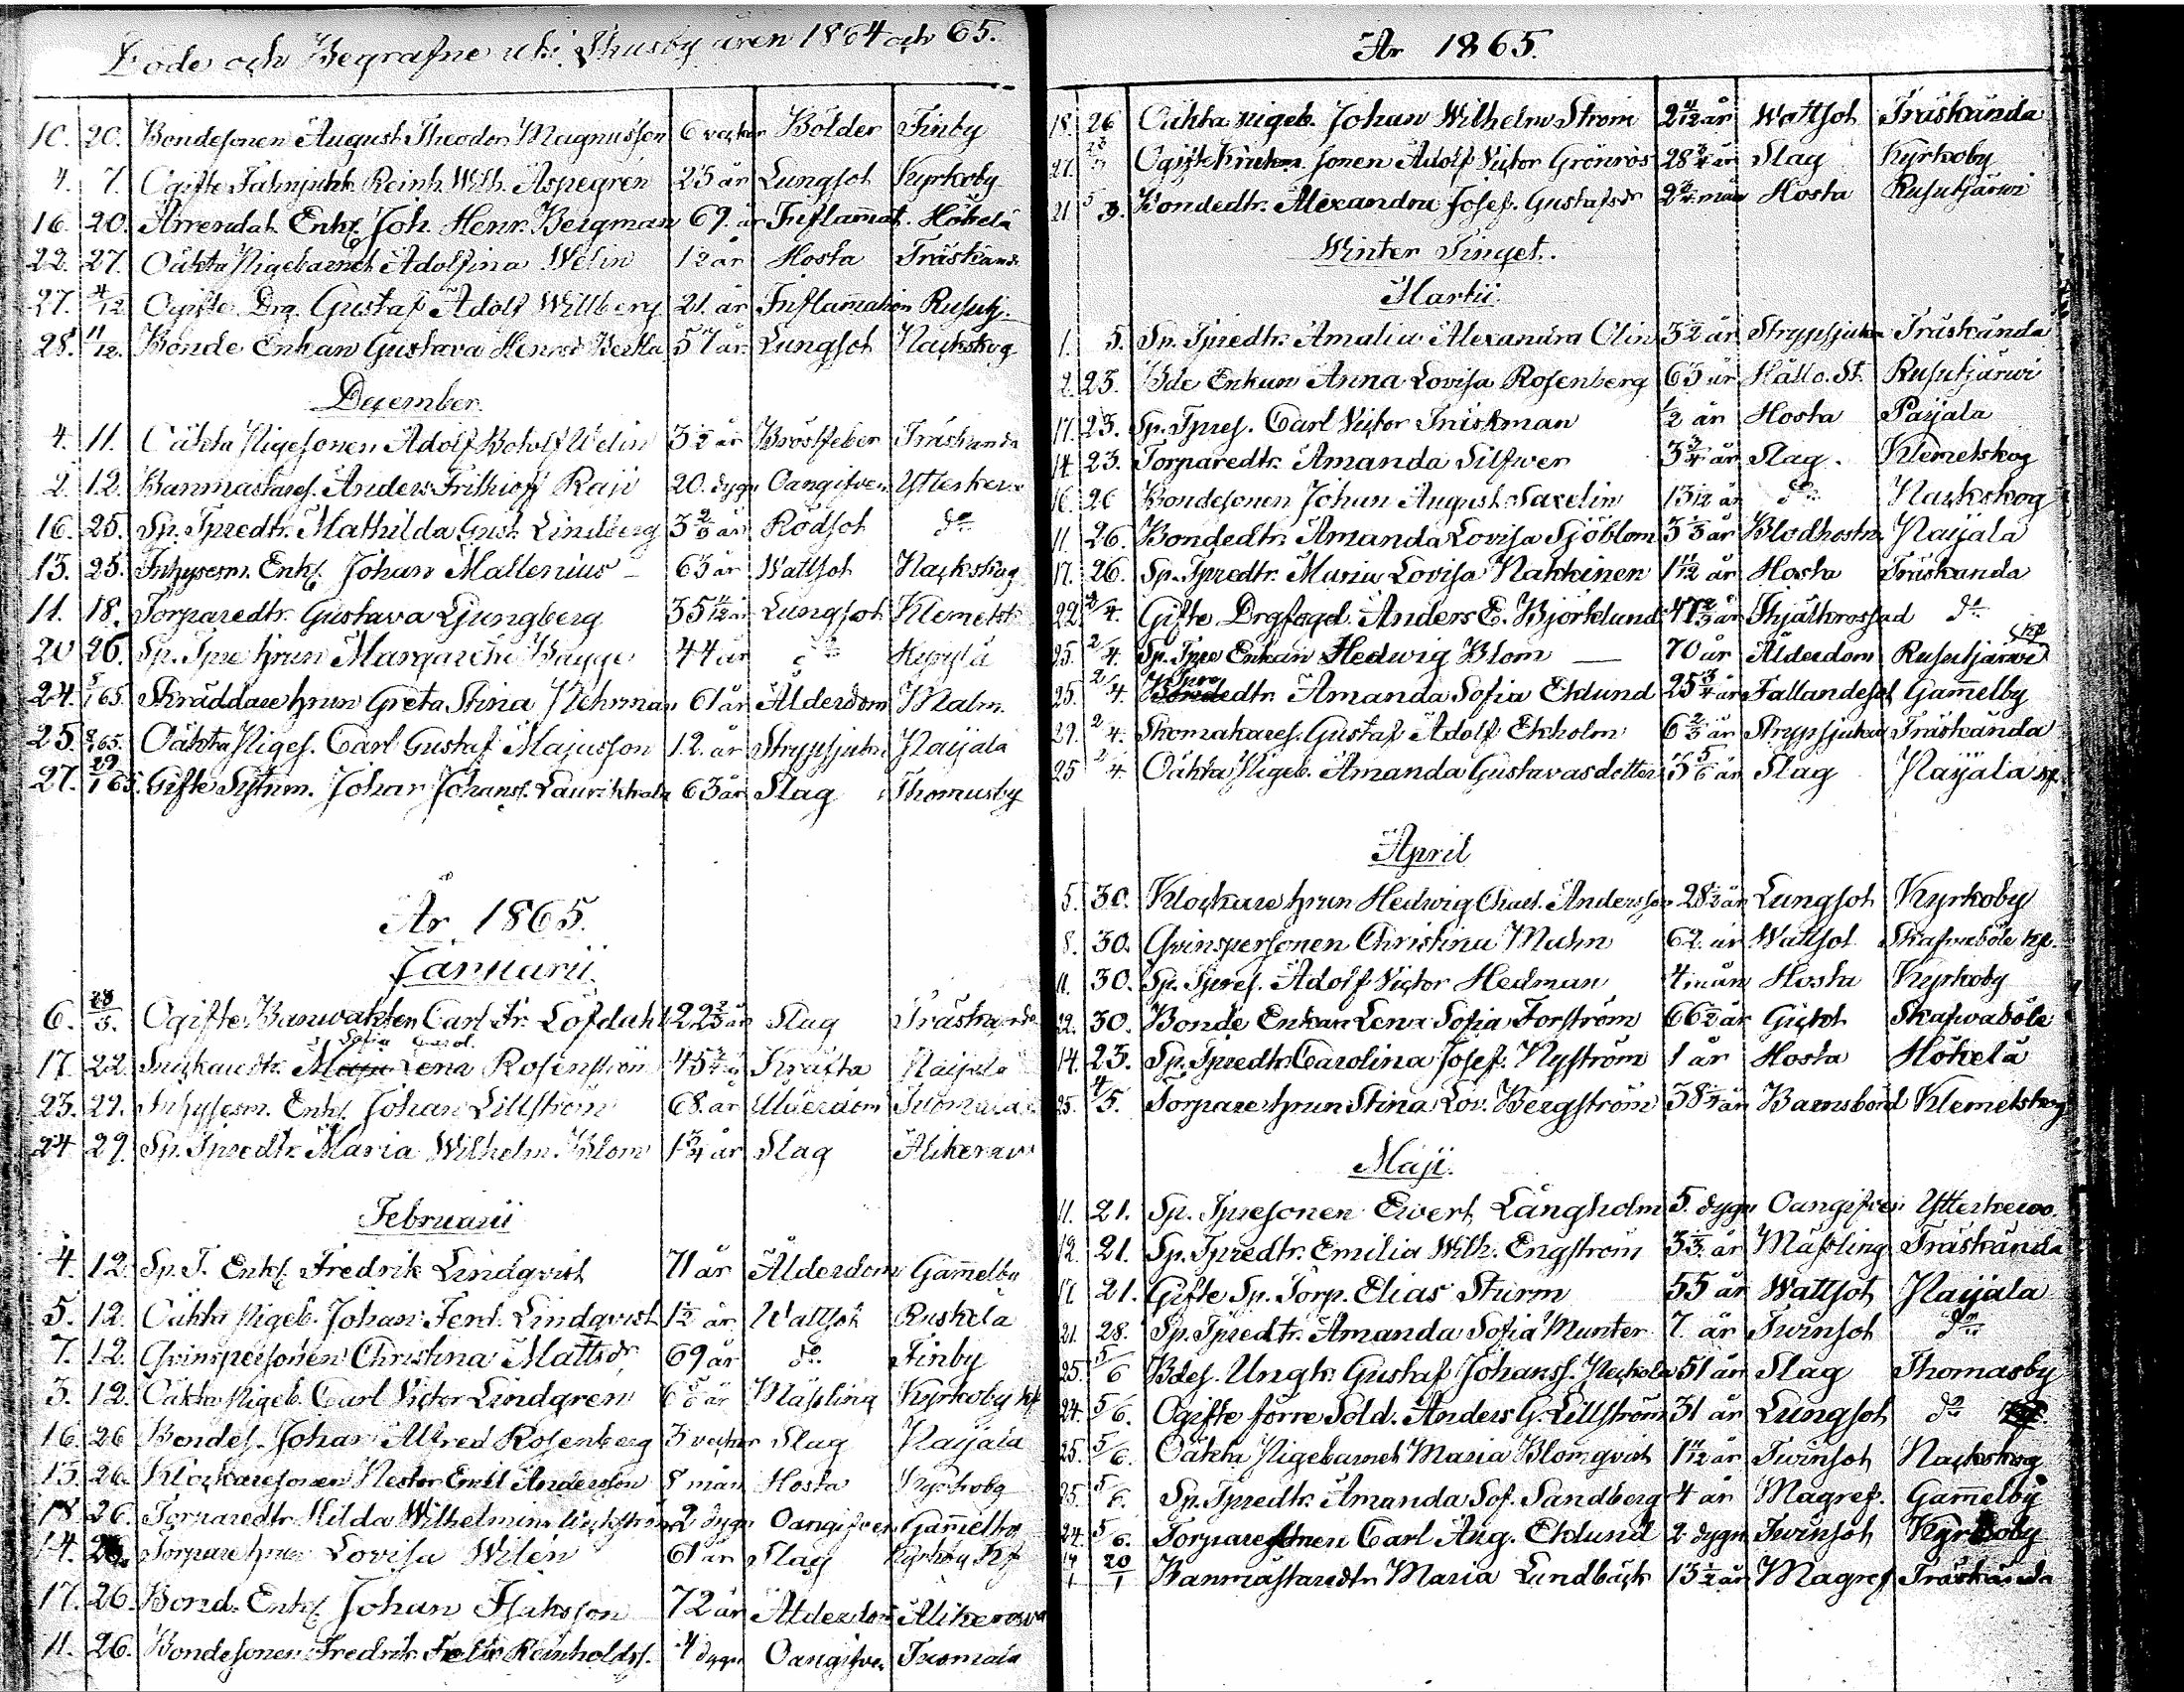 Döde och Begrafne uti Thusby åren 1864 och 65.
10. 20. Bondesonen August Theodor Magnusson 6 veckor Bölder Finby
4. 7. Ogifte Fahnjunk. Reinh. Wilh. Aspegrén 25 år Lungsot Kyrkoby
16. 20. Arrendat. Enkl. Joh. Henr. Bergman 69. år Inflammat. Hökelä
22. 27. Oäkta Pigebarnet Adolfina Welin 1½ år Hosta Träskänd.
27. 4/12 Ogifte Drg. Gustaf Adolf Willberg 21. år Inflammation Rusutj.
28. 11/12. Bonde Enkan Gustava Henrsd 57 år Lungsot Nackskog
December.
4. 11. Oäkta Pigesonen Adolf Welin 3½ år Bröstfeber Träskända
2. 12. Banmästares. Anders Frithioff 20. dygn Oangifven Ytterkerv.
16. 25. Sp. Tpredtr. Mathilda Gust. Lindberg 3⅔ år Rödsot do
13. 25. Inhysesm. Enkl. Johan Mallenius – 63 år Wattsot Nackskog
11. 18. Torparedtr. Gustava Ljungberg 35 11/12 år Lungsot Klemetsk.
20 26. Sp. Tpre hrun Margareta Bagge 44 år do Kyrylä
24. 65. Skräddare hrun Greta Stina Nehrman 61 år Ålderdom Malm.
25. 65. Oäkta Piges. Carl Gustaf Majusson 12. år Strypsjukn. Paijala
27. 29/1 65. Gifte Sytnm. Johan Johans. Laurikkala 63 år Slag Thomusby
År 1865.
Januarii.
6. Ogifte Banwakten Carl Fr. Löfdahl 22⅔ år Slag Träskända
Sofia Carol.
17. 22. Lena Rosenström 45½ år Kräfta Paijala
23. 29. Inhysesm. Enkl. Johan Lillström 68. år Ålderdom Tuomala
24 29. Sp. Tpredtr. Maria Wilhelm. Blom 1¾ år Slag Alikerava
Februarii
4. 12. Sp. T. Enkl. Fredrik Lindqvist 71 år Ålderdom Gammelby
5. 12. Oäkta Pigeb. Johan Ferd. Lindqvist 1½ år Wattsot Ruskela
7. 12. Qvinspersonen Christina Mattsdr 69 år do Finby
3. 12. Oäkta Pigeb. Carl Victor Lindgren 6 år Mässling Kyrkoby
16. 26 Bondes. Johan Alfred Rosenberg 3 veckor Slag Paijala
13. 26. Klockaresonen Nestor Emil Andersson 8 mån Hosta Kyrkoby
18. 26. Torparedtr. Hilda Wilhelmina 2 dygn Oangifven Gammelby
14. 26. Torpare hrun Lovisa Wilén 61 år Slag Kyrkoby
17. 26. Bond. Enkl. Johan Isaksson 72 år Ålderdom Alikerava
11. 26. Bondesonen Fredrik Felix Reinholdss. 4 dygn Oangifven Tuomala
År 1865.
18. 26 Oäkta Pigeb. Johan Wilhelm Ström 2 år Wattsot Träskända
21. Ogifte sonen Adolf Victor Grönroos 28¾ år Slag Kyrkoby
21. Bondedtr. Alexandra Josef. Gustafsdr 2 mån Hosta Rusutjärwi
Winter Tinget.
Martii.
1. 5. Sp. Tpredtr. Amalia Alexandra Olin 3½ år Strypsjukan Träskända
2. 23. Bde Enkan Anna Lovisa Rosenberg 63 år Håll o. St. Rusutjärwi
17. 23. Sp. Tpres. Carl Victor Träskman ½ år Hosta Paijala
14. 23. Torparedtr. Amanda Silfwer 3¾ år Slag. Klemetskog
16. 26 Bondesonen Johan August Saxelin 13 år do Nackskog
11. 26. Bondedtr. Amanda Lovisa Sjöblom 3⅓ år Blodhostn. Paijala
17. 26. Sp. Tpredtr. Maria Lovisa Nakkinen 1 år Hosta Träskända
22. 2/4. Gifte Drgfogd. Anders E. Björklund 47⅔ år do
25. 2/4. Sp. Tpre Enkan Hedwig Blom — 70 år Ålderdom Rusutjärwi
25. 2/4. Tpredtr. Amanda Sofia Eklund 25¾ år Fallandesot Gammelby
29. 2/4. Skomakares. Gustaf Adolf Ekholm 6⅔ år Strypsjukan Träskända
25 2/4. Oäkta Pigeb. Amanda Gustavasdotter år Slag Paijala
April
5. 30. Klockare hrun Hedwig Charl. Andersson 28½ år Lungsot Kyrkoby
8. 30. Qvinspersonen Christina Malm 62. år Wattsot Skafvaböle kp.
11. 30. Sp. Tpres. Adolf Victor Hedman 4 mån Hosta Kyrkoby
22. 30. Bonde Enkan Lena Sofia Forström 66½ år Gickt Skafwaböle
14. 23. Sp. Tpredtr. Carolina Josef. Nyström 1 år Hosta Hökelä
25. 4/5. Torpare hrun Stina Lov. Bergström 38 år Barnsbörd Klemetskog
Maji.
11. 21. Sp. Tpresonen Ewert Långholm 5. dygn Oangifven Ytterkerw.
12. 21. Sp. Tpredtr. Emilia Wilh. Engström 3⅓ år Mässling Träskända
17 21. Gifte Sp. Torp. Elias Sturm 55 år Wattsot Paijala
21. 28. Sp. Tpredtr. Amanda Sofia Munter 7. år Twinsot do
25. 5/6 Bdes. Ungk. Gustaf Johanss. 51 år Slag Thomasby
24. 5/6. Ogifte förre Sold. Anders G. Lillström 31 år Lungsot do
25. 5/6. Oäkta Pigebarnet Maria Blomqvist 1 år Twinsot Nackskog
25. 5/6. Sp. Tpredtr. Amanda Sof. Sandberg 4 år Magref. Gammelby
24. 5/6. Torparesonen Carl Aug. Eklund 2 dygn Twinsot Kyrkoby
Banmästaredtr Maria Lundbäck 13½ år Magref Träskända